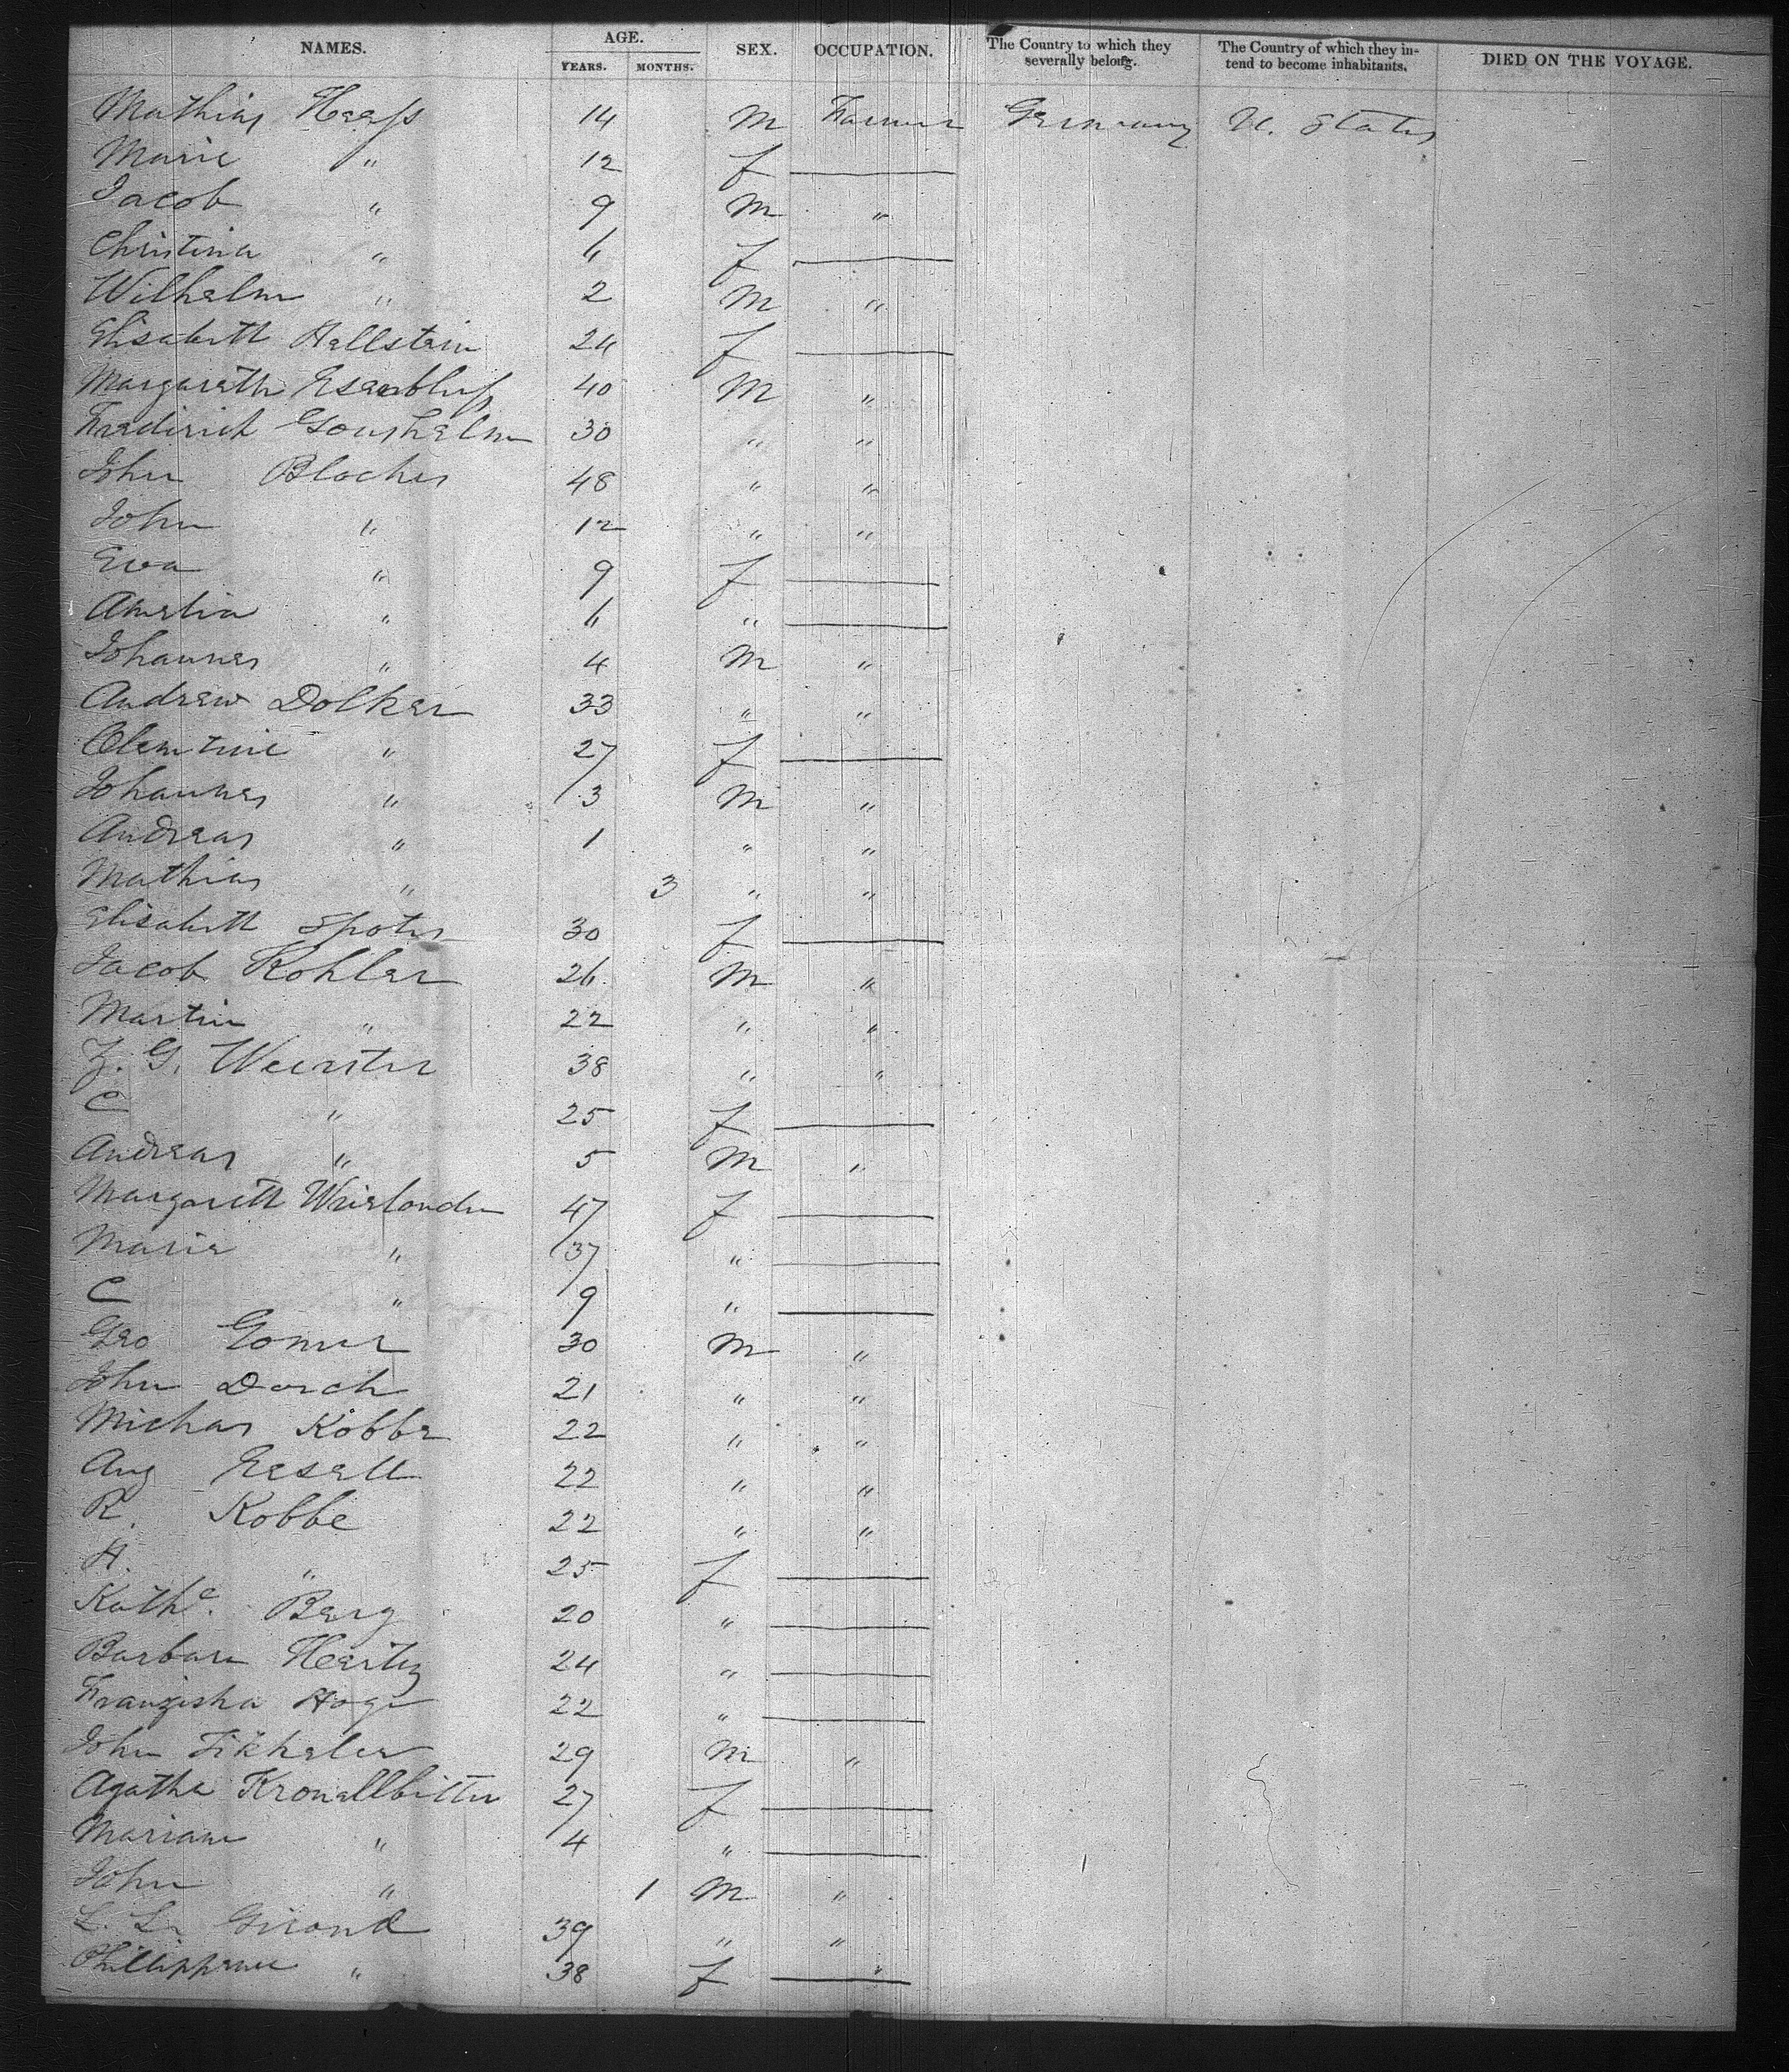 NAMES. AGE. YEARS. MONTHS. SEX. OCCUPATION. The Country to which they severally belong. The Country of which they intend to become inhabitants. DIED ON THE VOYAGE.
Mathias Heess 14 M Farmer Germany U. States
Marie " 12 f —
Jacob " 9 M "
Christina " 6 f —
Wilhelm " 2 M "
Elisabeth Hellstein 24 f —
Margareth 40 M "
Frederick 30 " "
John Blocher 48 " "
John " 12 " "
Eva " 9 f —
Amelia " 6 " —
Johannes " 4 M "
Andrew Dolker 33 " "
Clemtine " 27 f —
Johannes " 3 M "
Andreas " 1 " "
Mathias " 3 " "
Elisabeth Spoter 30 f —
Jacob Kohler 26 M "
Martin " 22 " "
G. 38 " "
C " 25 f —
Andreas " 5 M "
Margareth 47 f —
Marie " 37 " —
C " 9 " —
Geo Gomer 30 M "
John Dorch 21 " "
Michas Kobbe 22 " "
Aug 22 " "
R. Kobbe 22 " "
H. " 25 f —
Kathe. Berg 20 " —
Barbara 24 " —
Franziska Hoge 22 " —
John 29 M "
Agatha Kronellbitter 27 f —
Mariane " 4 " —
John " 1 M "
L. L. Girond 39 " "
Phillippene " 38 f —